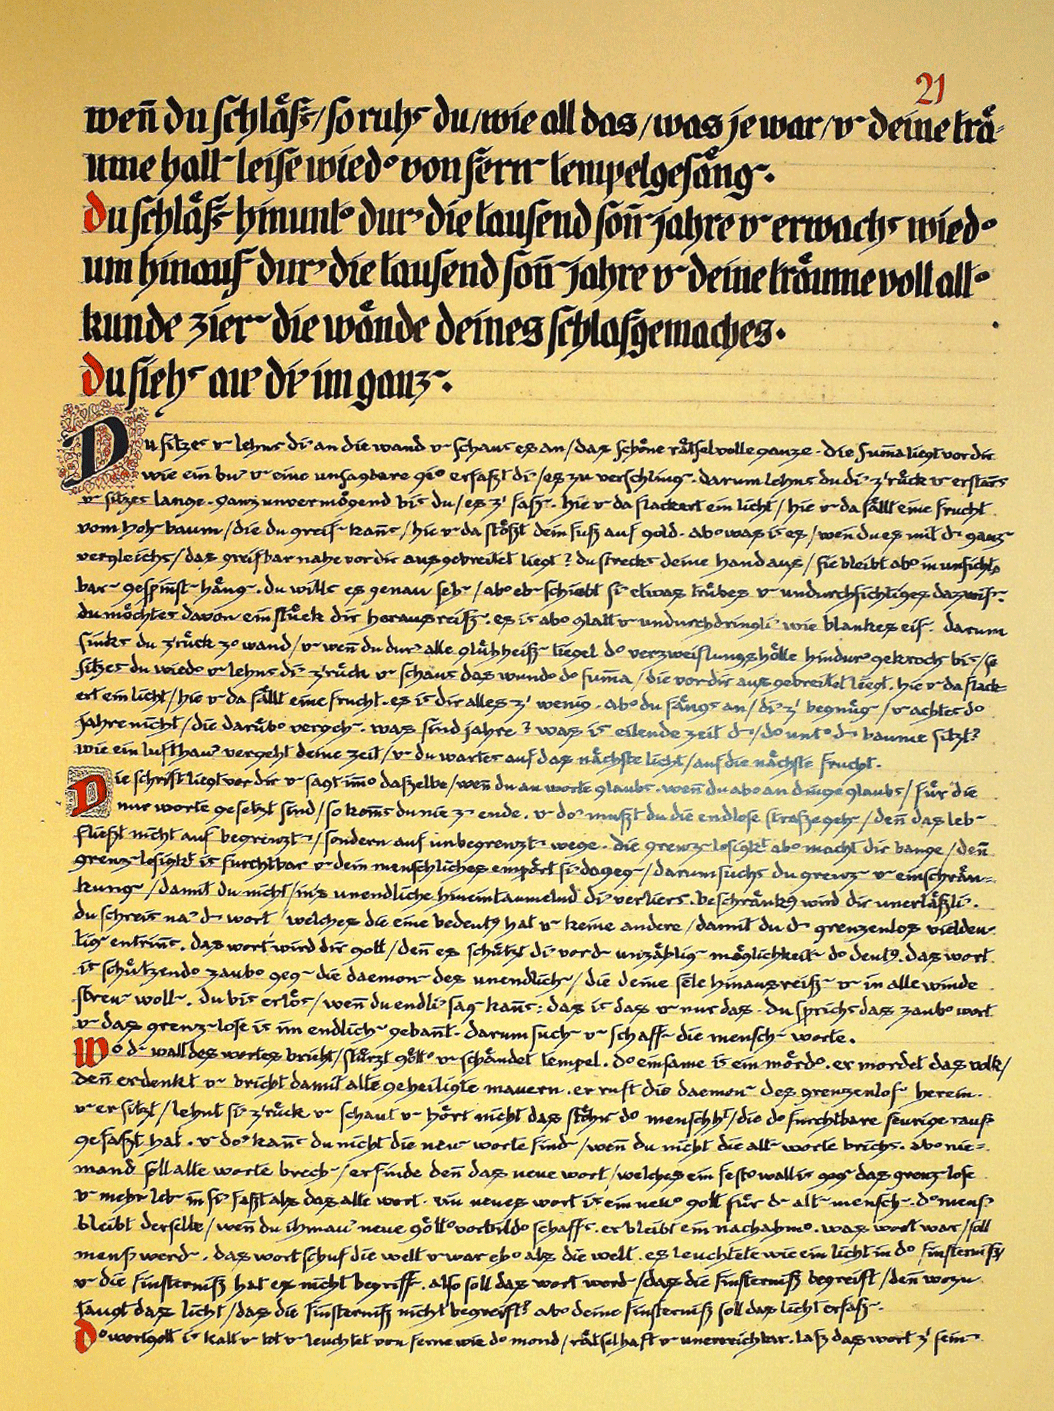 21
wen̄ du schläfst/so ruhst du/wie all das/was je war/v deine träu-
ume hallt leise wied° von fern tempelgesäng.
du schläfst hinunt° dur' die tausend son̄ jahre v erwachst wied°
um hinauf dur' die tausend son̄ jahre v deine träume voll alt°
kunde zier die wände deines schlafgemaches.
du siehst au' di' im ganz.
Du sitzest v lehnst di' an die wand v schaust es an/das schöne rätselvolle ganze. die Sum̄a liegt vor dir
wie ein bu' v eine unsagbare gi° erfaßt di'/es zu verschling. darum lehnst du di' z'rück v erstarrst
v sitzest lange. ganz unvermögend bist du/es z' fass. hie v da flackert ein licht/hie v da fällt eine frucht
vom hoh baum/die du greif kan̄st/hie v da stößt dein fuß auf gold. ab° was ist es/wen̄ du es mit d ganz
vergleichst/das greifbar nahe vor dir ausgebreitet liegt? du streckst deine hand aus/sie bleibt ab° in unsichtb
bar gespinst häng. du willst es genau seh/ab° etw schiebt si' etwas trübes v undurchsichtiges dazwisch.
du möchtest davon ein stück dir herausreiss. es ist ab° glatt v undurchdringli' wie blankes eis. darum
sinkst du z'rück z° wand/v wen̄ du dur' alle glühheiss tiegel d° verzweiflungshölle hindur' gekroch bist/so
sitzest du wied° v lehnst di' z'rück v schaust das wund° d° sum̄a/die vor dir ausgebreitet liegt. hie v da flack-
ert ein licht/hie v da fällt eine frucht. es ist dir alles z' wenig. ab° du fängst an/di' z' begnüg/v achtest d°
jahre nicht/die darüb° vergeh. was sind jahre? was ist eilende zeit d/d° unt° d baume sitzt?
wie ein lufthau' vergeht deine zeit/v du wartest auf das nächste licht/auf die nächste frucht.
Die schrift liegt vor dir v sagt im̄° dasselbe/wen̄ du an worte glaubst. wen̄ du ab° an dinge glaubst/für die
nur worte gesetzt sind/so kom̄st du nie z' ende. v do' mußt du die endlose straße geh/den̄ das leb
fließt nicht auf begrenzt/sondern auf unbegrenzt wege. die grenz losigkt ab° macht dir bange/den̄
grenz losigkt ist furchtbar v dein menschliches empört si' dageg/darum suchst du grenz v einschrän-
kung/damit du nicht/ins unendliche hineintaumelnd di' verlierst. beschränkg wird dir unerläßli'.
du schreist na' d wort welches die eine bedeutg hat v keine andere/damit du d grenzenlos vieldeu
tigk entrinst. das wort wird dir gott/den̄ es schützt di' vor d unzählig möglichkeit d° deutg. das wort
ist schützend° zaub° geg die daemon des unendlich/die deine seele hinausreiss v in alle winde
streu woll. du bist erlöst/wen̄ du endli' sag kan̄st: das ist das v nur das. du sprichst das zaub° wort
v das grenz lose ist im endlich geban̄t. darum such v schaff die mensch worte.
Wo d wall des wortes bricht/stürzt gött° v schändet tempel. d° einsame ist ein mörd°. er mordet das volk/
den̄ er denkt v bricht damit alte geheiligte mauern. er ruft die daemon des grenzenlos herein.
v er sitzt/lehnt si' z'rück v schaut v hört nicht das stöhn d° menschht/die d° furchtbare feurige rausch
gefaßt hat. v do' kan̄st du nicht die neu worte find/wen̄ du nicht die alt worte brichst. ab° nie-
mand soll alte worte brech/er finde den̄ das neue wort/welches ein fest° wall ist geg das grenz lose
v mehr leb in si' faßt als das alte wort. ein neues wort ist ein neu° gott für d alt mensch. d° mensch
bleibt derselbe/wen̄ du ihm au' neue gött° vorbild° schaffst. er bleibt ein nachahm°. was wort war/soll
mensch werd. das wort schuf die welt v war eh° als die welt. es leuchtete wie ein licht in d° finsterniß/
v die finsterniß hat es nicht begriff. also soll das wort werd/das die finsterniß begreift/den̄ wozu
taugt das licht/das die finsterniß nicht begreift? ab° deine finsterniß soll das licht erfass.
d° wortgott ist kalt v tot v leuchtet von ferne wie d° mond/rätselhaft v unerreichbar. laß das wort z' sein